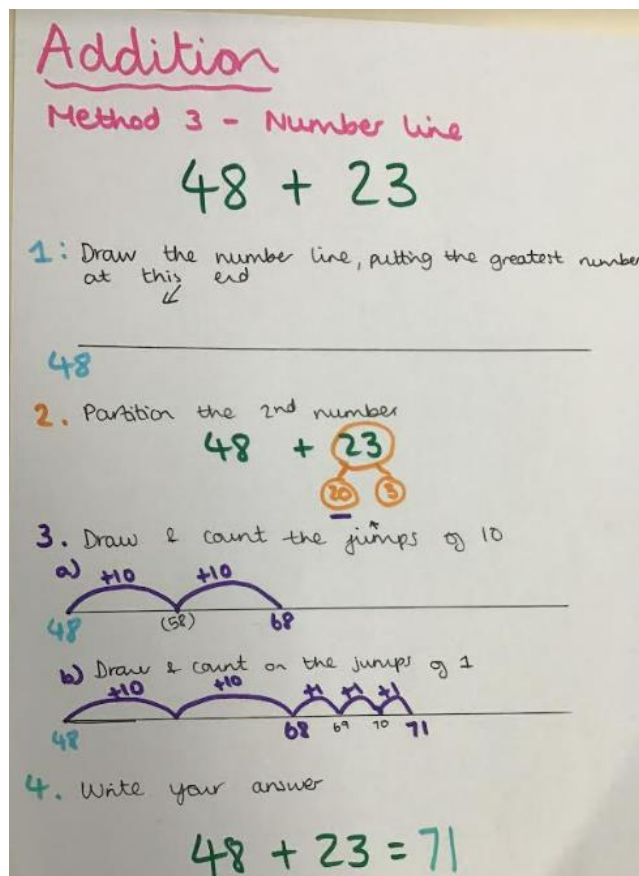 Addition
Method 3 - Number line
48 + 23
1: Draw the number line, putting the greatest number
at this end
48
2. Partition the 2nd number
48 + 23
20 3
3. Draw & count the jumps of 10
a) +10 +10
48 (58) 68
b) Draw & count on the jumps of 1
+10 +10 +1 +1 +1
48 68 69 70 71
4. Write your answer
48 + 23 = 71